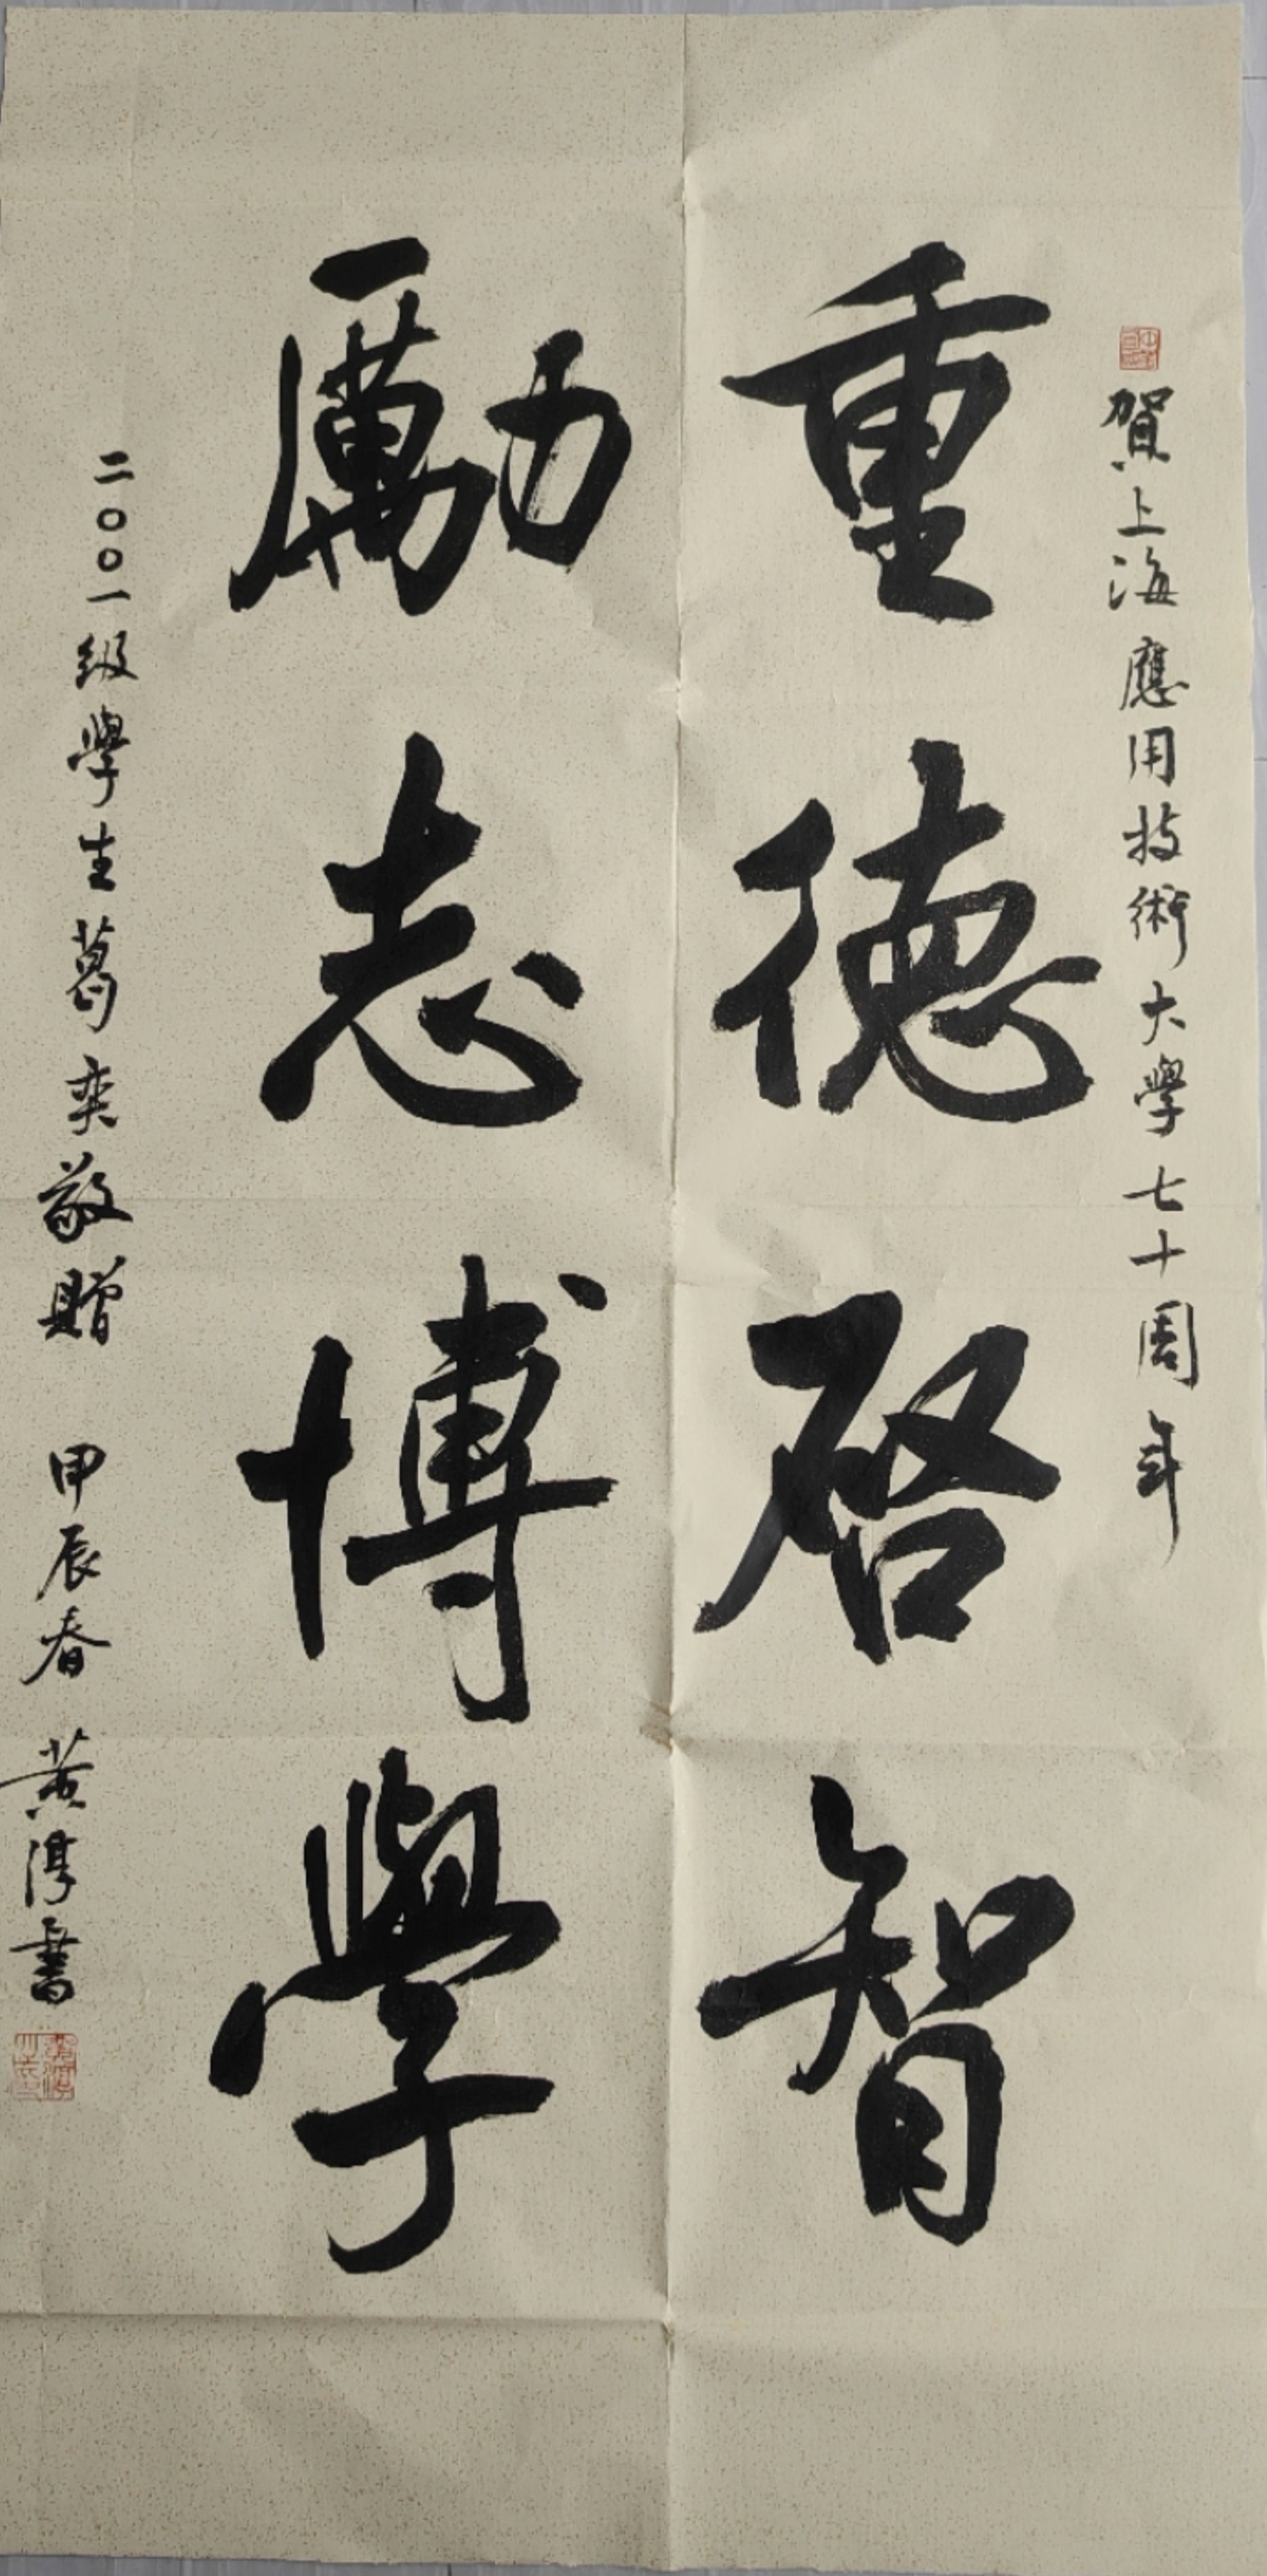 賀上海應用技術大學七十周年
重德啓智
勵志博學
二〇〇一級學生葛奕敬贈 甲辰春 黃淳書